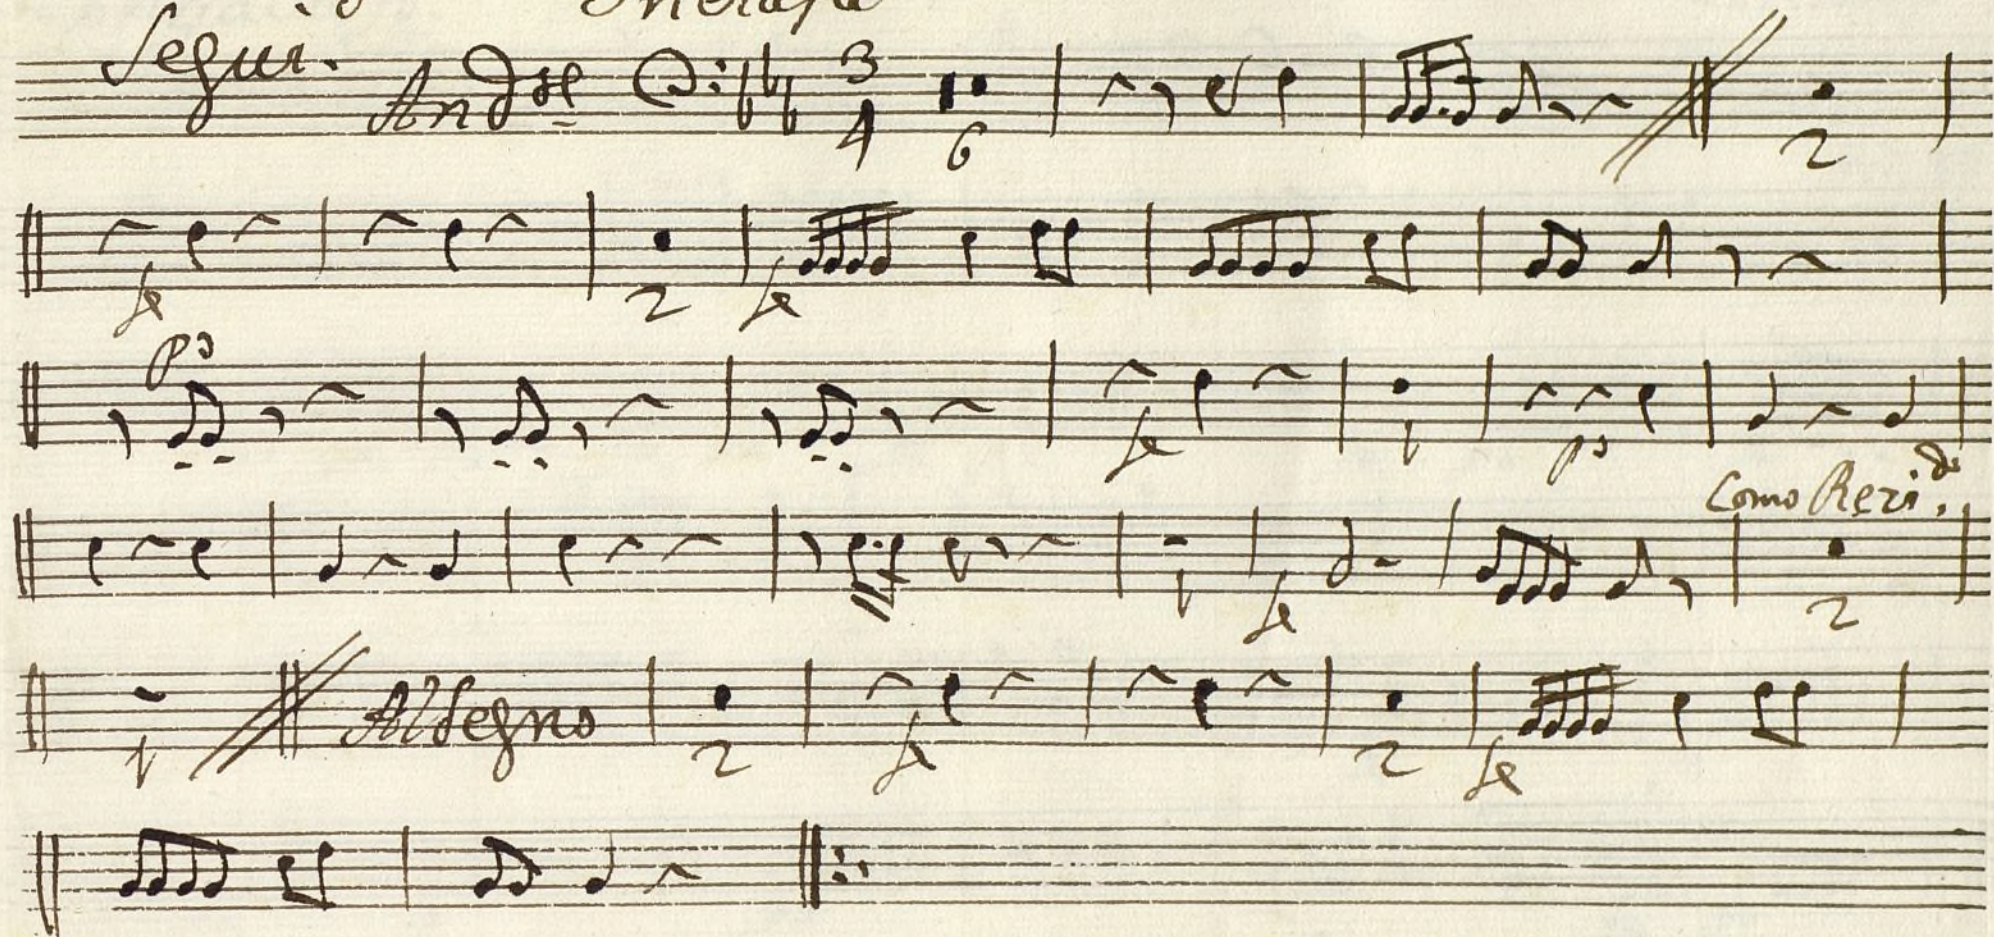 Segui. And.se 3 4 6 2
fe 2 fe
po fe 1 po
Como Rezi.do
1 fe 2
1 Al Segno 2 fe 2 fe